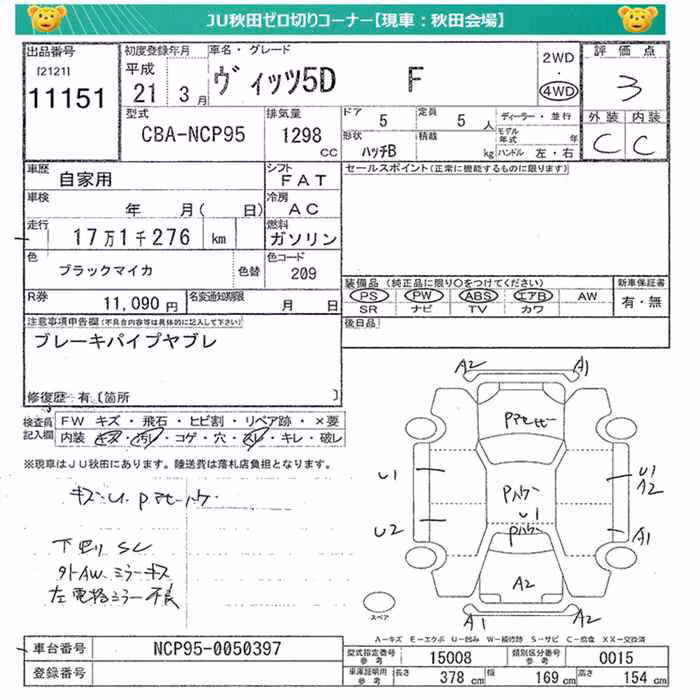 JU秋田ゼロ切りコーナー【現車：秋田会場】
出品番号
[2121]
11151
初度登録年月
平成
21 3 月
車名・グレード
ヴィッツ5D F
2WD
4WD
評価点
3
型式
CBA-NCP95
排気量
1298
CC
ドア
5
定員
5 人
ディーラー・並行
形状
ハッチB
積載
kg
モデル
年式 年
ハンドル 左・右
外装 内装
C C
車歴
自家用
シフト
FAT
セールスポイント(正常に機能するものに限ります)
車検
年 月( 日)
冷房
AC
走行
17万1千276 km
燃料
ガソリン
色
ブラックマイカ
色替
色コード
209
装備品（純正品に限り○をつけてください）
PS PW ABS エアB AW
SR ナビ TV カワ
新車保証書
有・無
R券
11,090 円
名変通知期限
月 日
後日品
注意事項申告欄(不具合内容等は具体的に記入して下さい)
ブレーキパイプヤブレ
修復歴 有〔箇所 〕
検査員
記入欄
FW キズ・飛石・ヒビ割・リペア跡・×要
内装 キズ・汚レ・コゲ・穴・スレ・キレ・破レ
※現車はJU秋田にあります。陸送費は落札店負担となります。
下廻りSC
外AW、ミラーキズ
左電格ミラー不良
A2 A1
Pハケ
U1
U1
A2
U1
Pハケ
U2
A1
A2
A1 A2
スペア
A―キズ E―エクボ U―凹み W―補修跡 S―サビ C―腐食 XX―交換済
車台番号
NCP95-0050397
登録番号
型式指定番号
参考
15008
類別区分番号
参考
0015
車庫証明用
参考
長さ
378 cm
幅
169 cm
高さ
154 cm